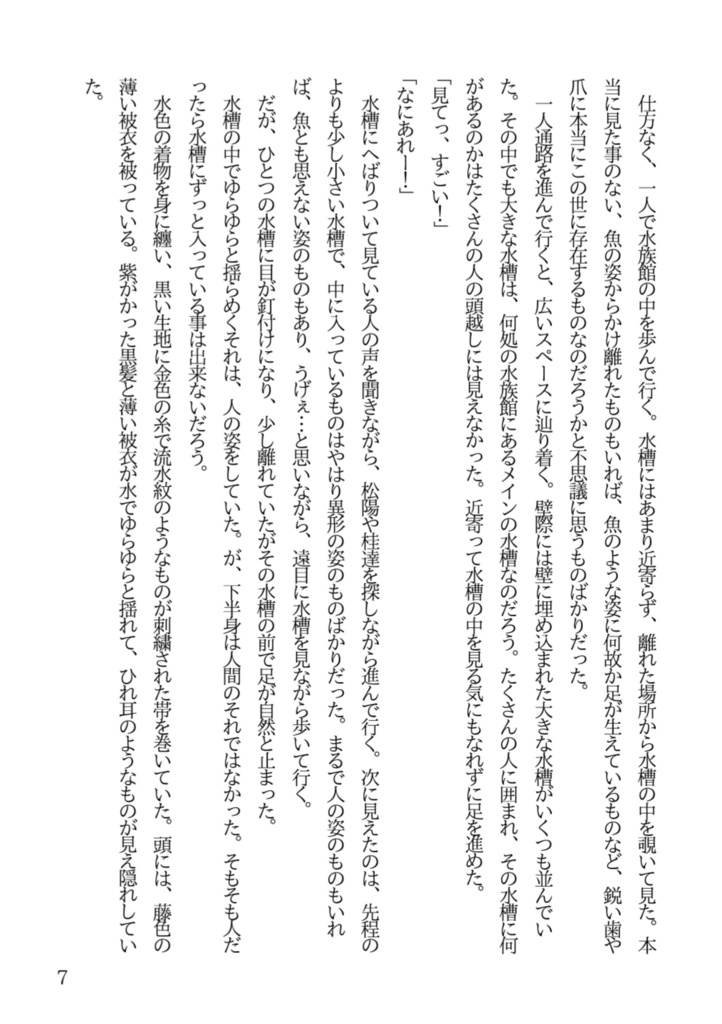 仕方なく、一人で水族館の中を歩んで行く。水槽にはあまり近寄らず、離れた場所から水槽の中を覗いて見た。本
当に見た事のない、魚の姿からかけ離れたものもいれば、魚のような姿に何故か足が生えているものなど、鋭い歯や
爪に本当にこの世に存在するものなのだろうかと不思議に思うものばかりだった。
一人通路を進んで行くと、広いスペースに辿り着く。壁際には壁に埋め込まれた大きな水槽がいくつも並んでい
た。その中でも大きな水槽は、何処の水族館にあるメインの水槽なのだろう。たくさんの人に囲まれ、その水槽に何
があるのかはたくさんの人の頭越しには見えなかった。近寄って水槽の中を見る気にもなれずに足を進めた。
「見てっ、すごい！」
「なにあれー！」
水槽にへばりついて見ている人の声を聞きながら、松陽や桂達を探しながら進んで行く。次に見えたのは、先程の
よりも少し小さい水槽で、中に入っているものはやはり異形の姿のものばかりだった。まるで人の姿のものもいれ
ば、魚とも思えない姿のものもあり、うげぇ…と思いながら、遠目に水槽を見ながら歩いて行く。
だが、ひとつの水槽に目が釘付けになり、少し離れていたがその水槽の前で足が自然と止まった。
水槽の中でゆらゆらと揺らめくそれは、人の姿をしていた。が、下半身は人間のそれではなかった。そもそも人だ
ったら水槽にずっと入っている事は出来ないだろう。
水色の着物を身に纏い、黒い生地に金色の糸で流水紋のようなものが刺繍された帯を巻いていた。頭には、藤色の
薄い被衣を被っている。紫がかった黒髪と薄い被衣が水でゆらゆらと揺れて、ひれ耳のようなものが見え隠れしてい
た。
7